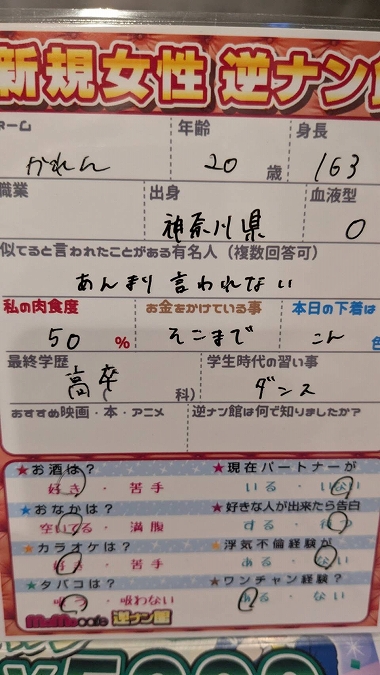 新規女性 逆ナン館
ネーム 年齢 身長
かれん 20 歳 163
職業 出身 血液型
神奈川県 O
似てると言われたことがある有名人（複数回答可）
あんまり言われない
私の肉食度 お金をかけている事 本日の下着は
50 % そこまで こん 色
最終学歴 学生時代の習い事
高卒 科） ダンス
おすすめ映画・本・アニメ 逆ナン館は何で知りましたか？
★お酒は？ ★現在パートナーが
好き ・ 苦手 いる ・ いない
★おなかは？ ★好きな人が出来たら告白
空いてる ・ 満腹 する ・ 待つ
★カラオケは？ ★浮気不倫経験が
好き ・ 苦手 ある ・ ない
★タバコは？ ★ワンチャン経験？
吸う ・ 吸わない ある ・ ない
MoMo cafe 逆ナン館